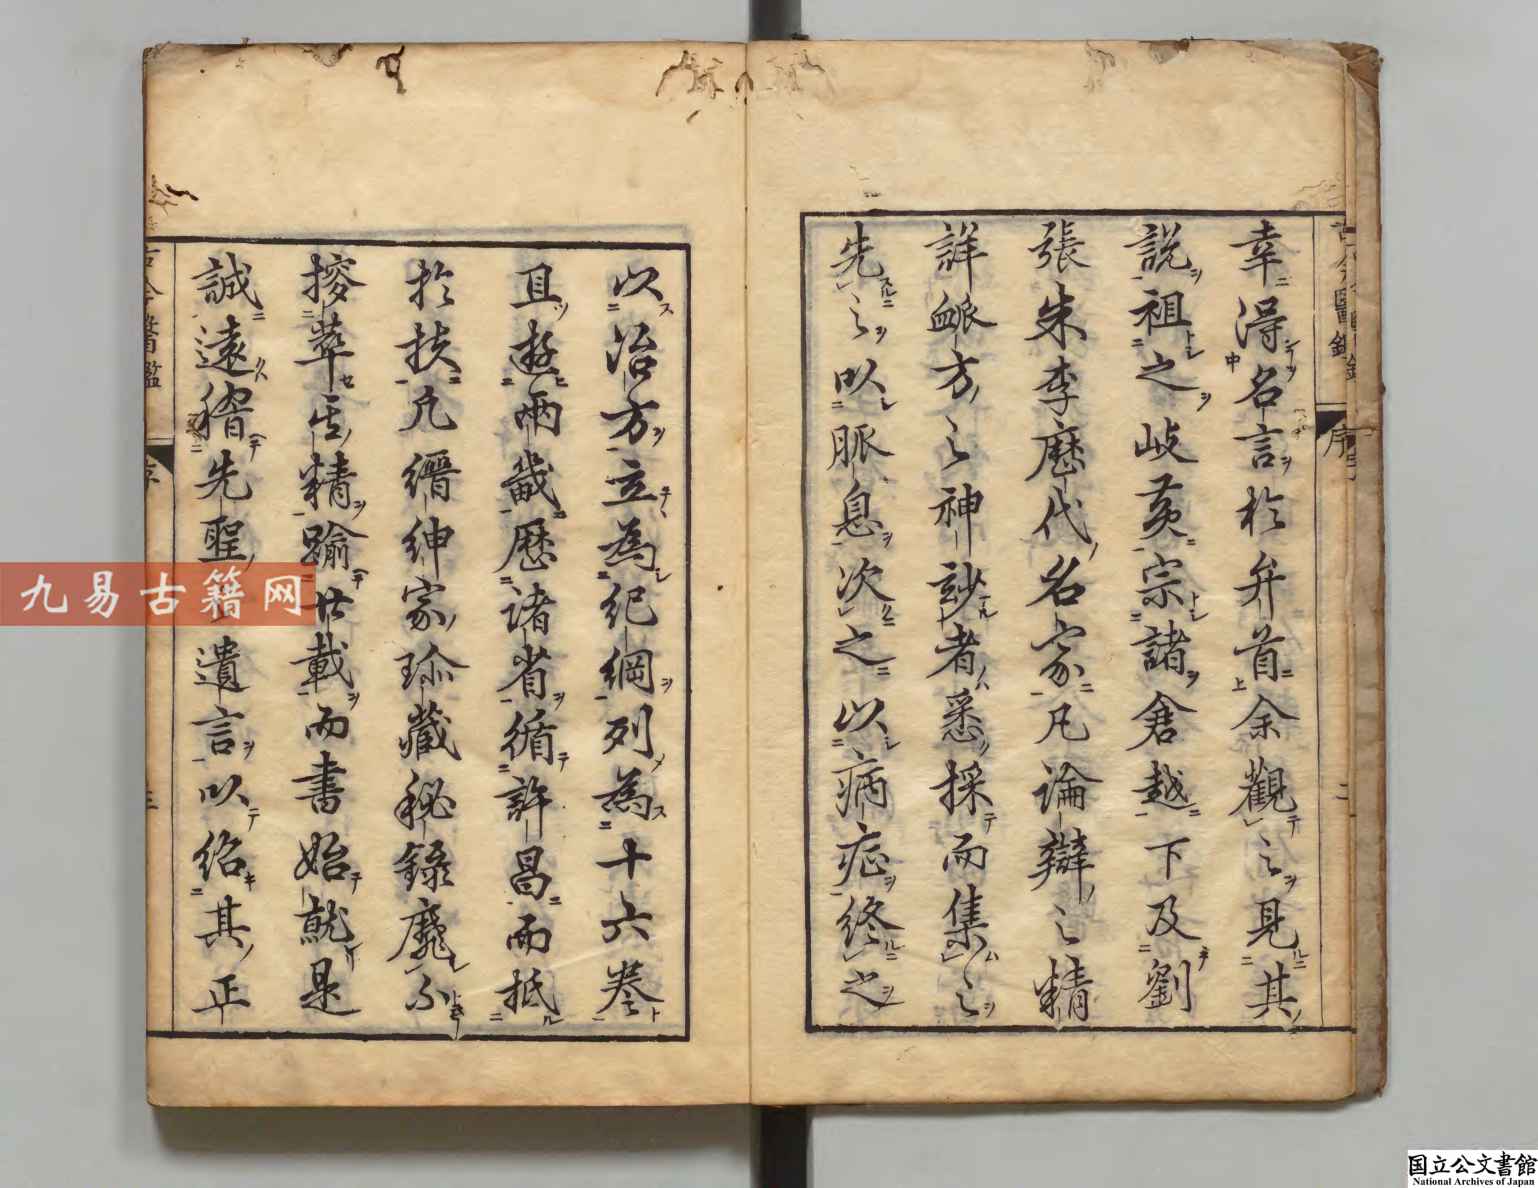 幸得名言於弁首余觀之見其
說祖之岐黃宗諸倉越下及劉
張朱李歷代名家凡論辯之精
詳衇方之神訬者悉採而集之
先之以脈息次之以病症終之
以治方立為紀綱列為十六卷
且遊兩畿歷諸省循許昌而抵
於扶凡縉紳家珍藏秘錄靡不
萃其精踰廿載而書始就是
誠遠稽先聖遺言以紹其正
古今醫鑑
序
二
古今醫鑑
序
三
九易古籍网
国立公文書館
National Archives of Japan